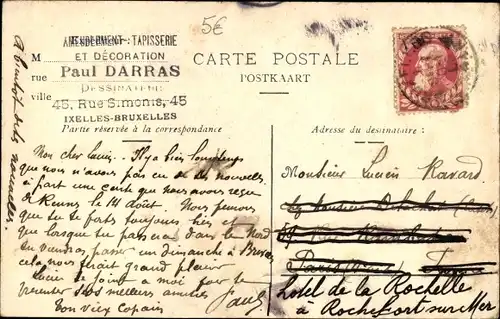 5€
AMEUBLEMENT : TAPISSERIE
ET DÉCORATION
M
Paul DARRAS
rue
DESSINATEUR
ville
45, Rue Simonis, 45
IXELLES-BRUXELLES
Partie réservée à la correspondance
CARTE POSTALE
POSTKAART
Adresse du destinaire :
A bientôt de tes nouvelles
Mon cher Lucien. Il y a bien longtemps
que nous n'avons pas eu de tes nouvelles
à part une carte que nous avons reçue
de Rennes le 14 août. Nous pensons
que tu te portes toujours bien et
que lorsque tu passeras dans le Nord
tu viendras passer un dimanche à Brux.
cela nous ferait grand plaisir
présenter nos meilleurs amitiés
Ton vieux Copain
Paul
Monsieur Lucien Ravard
Paris
hotel de la Rochelle
à Rochefort sur Mer